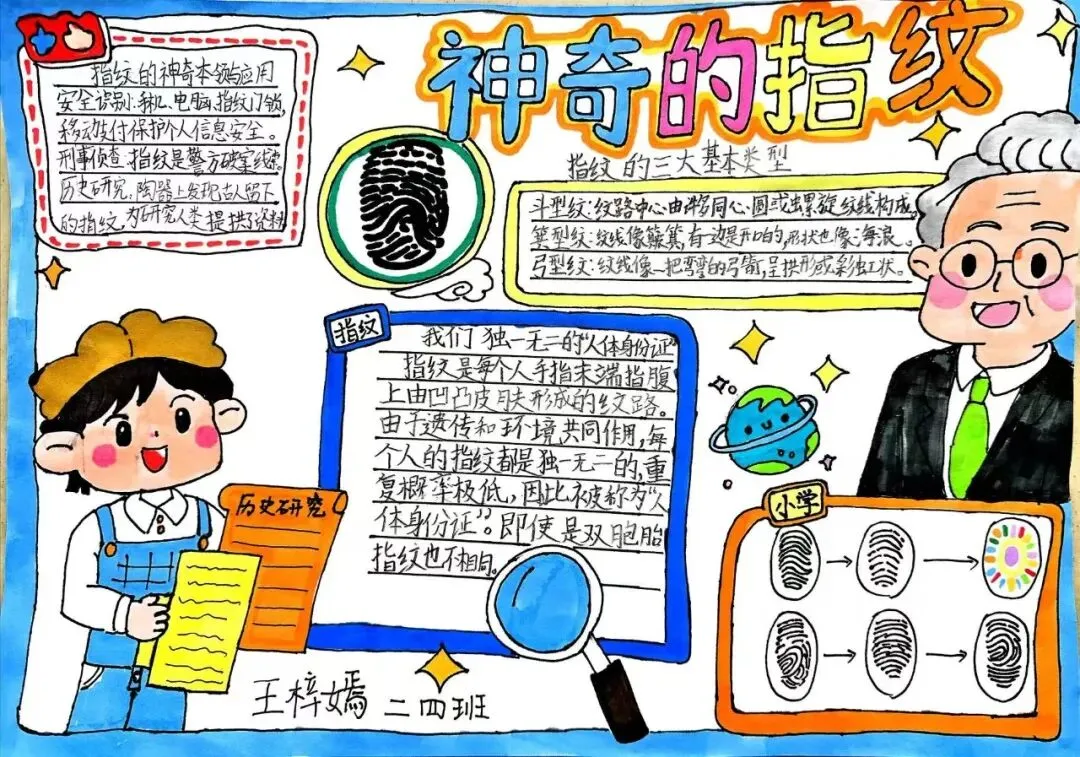 神奇的指纹
指纹的神奇本领与应用
安全识别:手机、电脑,指纹门锁,
移动支付保护个人信息安全。
刑事侦查:指纹是警方破案线索
历史研究,陶器上发现古人留下
的指纹,为研究人类提供了资料
指纹的三大基本类型
斗型纹:纹路中心由许多同心圆或螺旋纹线构成,
箕型纹:纹线像簸箕,有一边是开口的,形状也像海浪。
弓型纹:纹线像一把弯弯的弓箭,呈拱形或彩虹状。
指纹
我们独一无二的“人体身份证”
指纹是每个人手指末端指腹
上由凹凸皮肤形成的纹路。
由于遗传和环境共同作用,每
个人的指纹都是独一无二的,重
复概率极低,因此被称为“人
体身份证”。即使是双胞胎
指纹也不相同。
历史研究
小学
王梓嫣 二四班